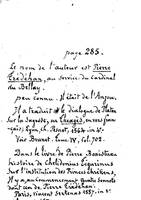 page 285.
Le nom de l'auteur est Pierre
Trédéhan, au service du Cardinal
du Bellay.
peu connu. Il était de l'Anjou.
Il a traduit le dialogue de Platon
sur la sagesse, ou Théagès, en vers fran-
çais; Lyon, Ch. Pesnot, 1564 in 4°.
Voir Brunet. tome IV, Col. 702.
Dans le livre de Pierre Boaistuau
histoire de Chelidonius Tigurinus
sur l'institution des Princes chrétiens,
il y a au commencement
de Pierre Trédéhan.
Paris, Vincent Sertenas 1557. in 8°